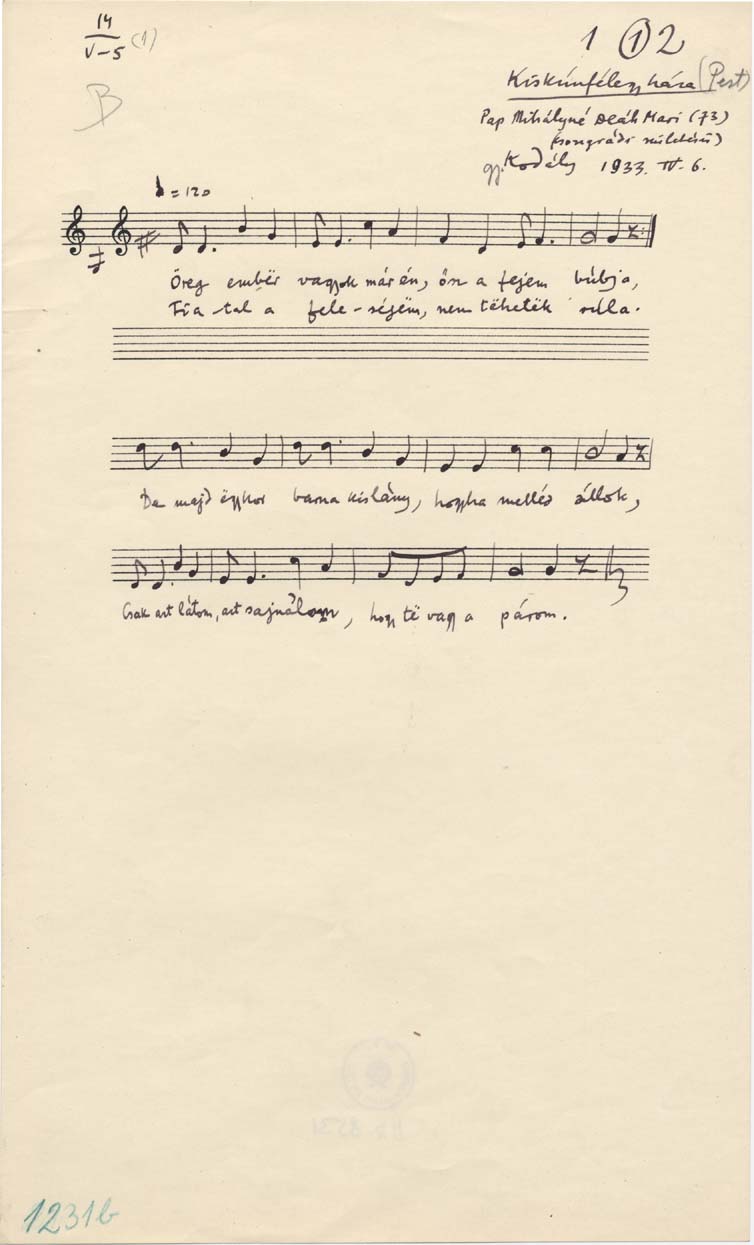 14
V-5 (1)
1 ① 2
B
Kiskunfélegyháza (Pest)
Pap Mihályné Deák Mari (73)
(csongrádi születésű)
gy. Kodály 1933. IV. 6.
= 120
Öreg embër vagyok már én, ősz a fejem búbja,
Fia-tal a fele-ségëm, nem tëhetëk rúla.
De majd ëgykor barna kislány, hogyha melléd állok,
Csak azt látom, azt sajnálom, hogy të vagy a párom.
1231b